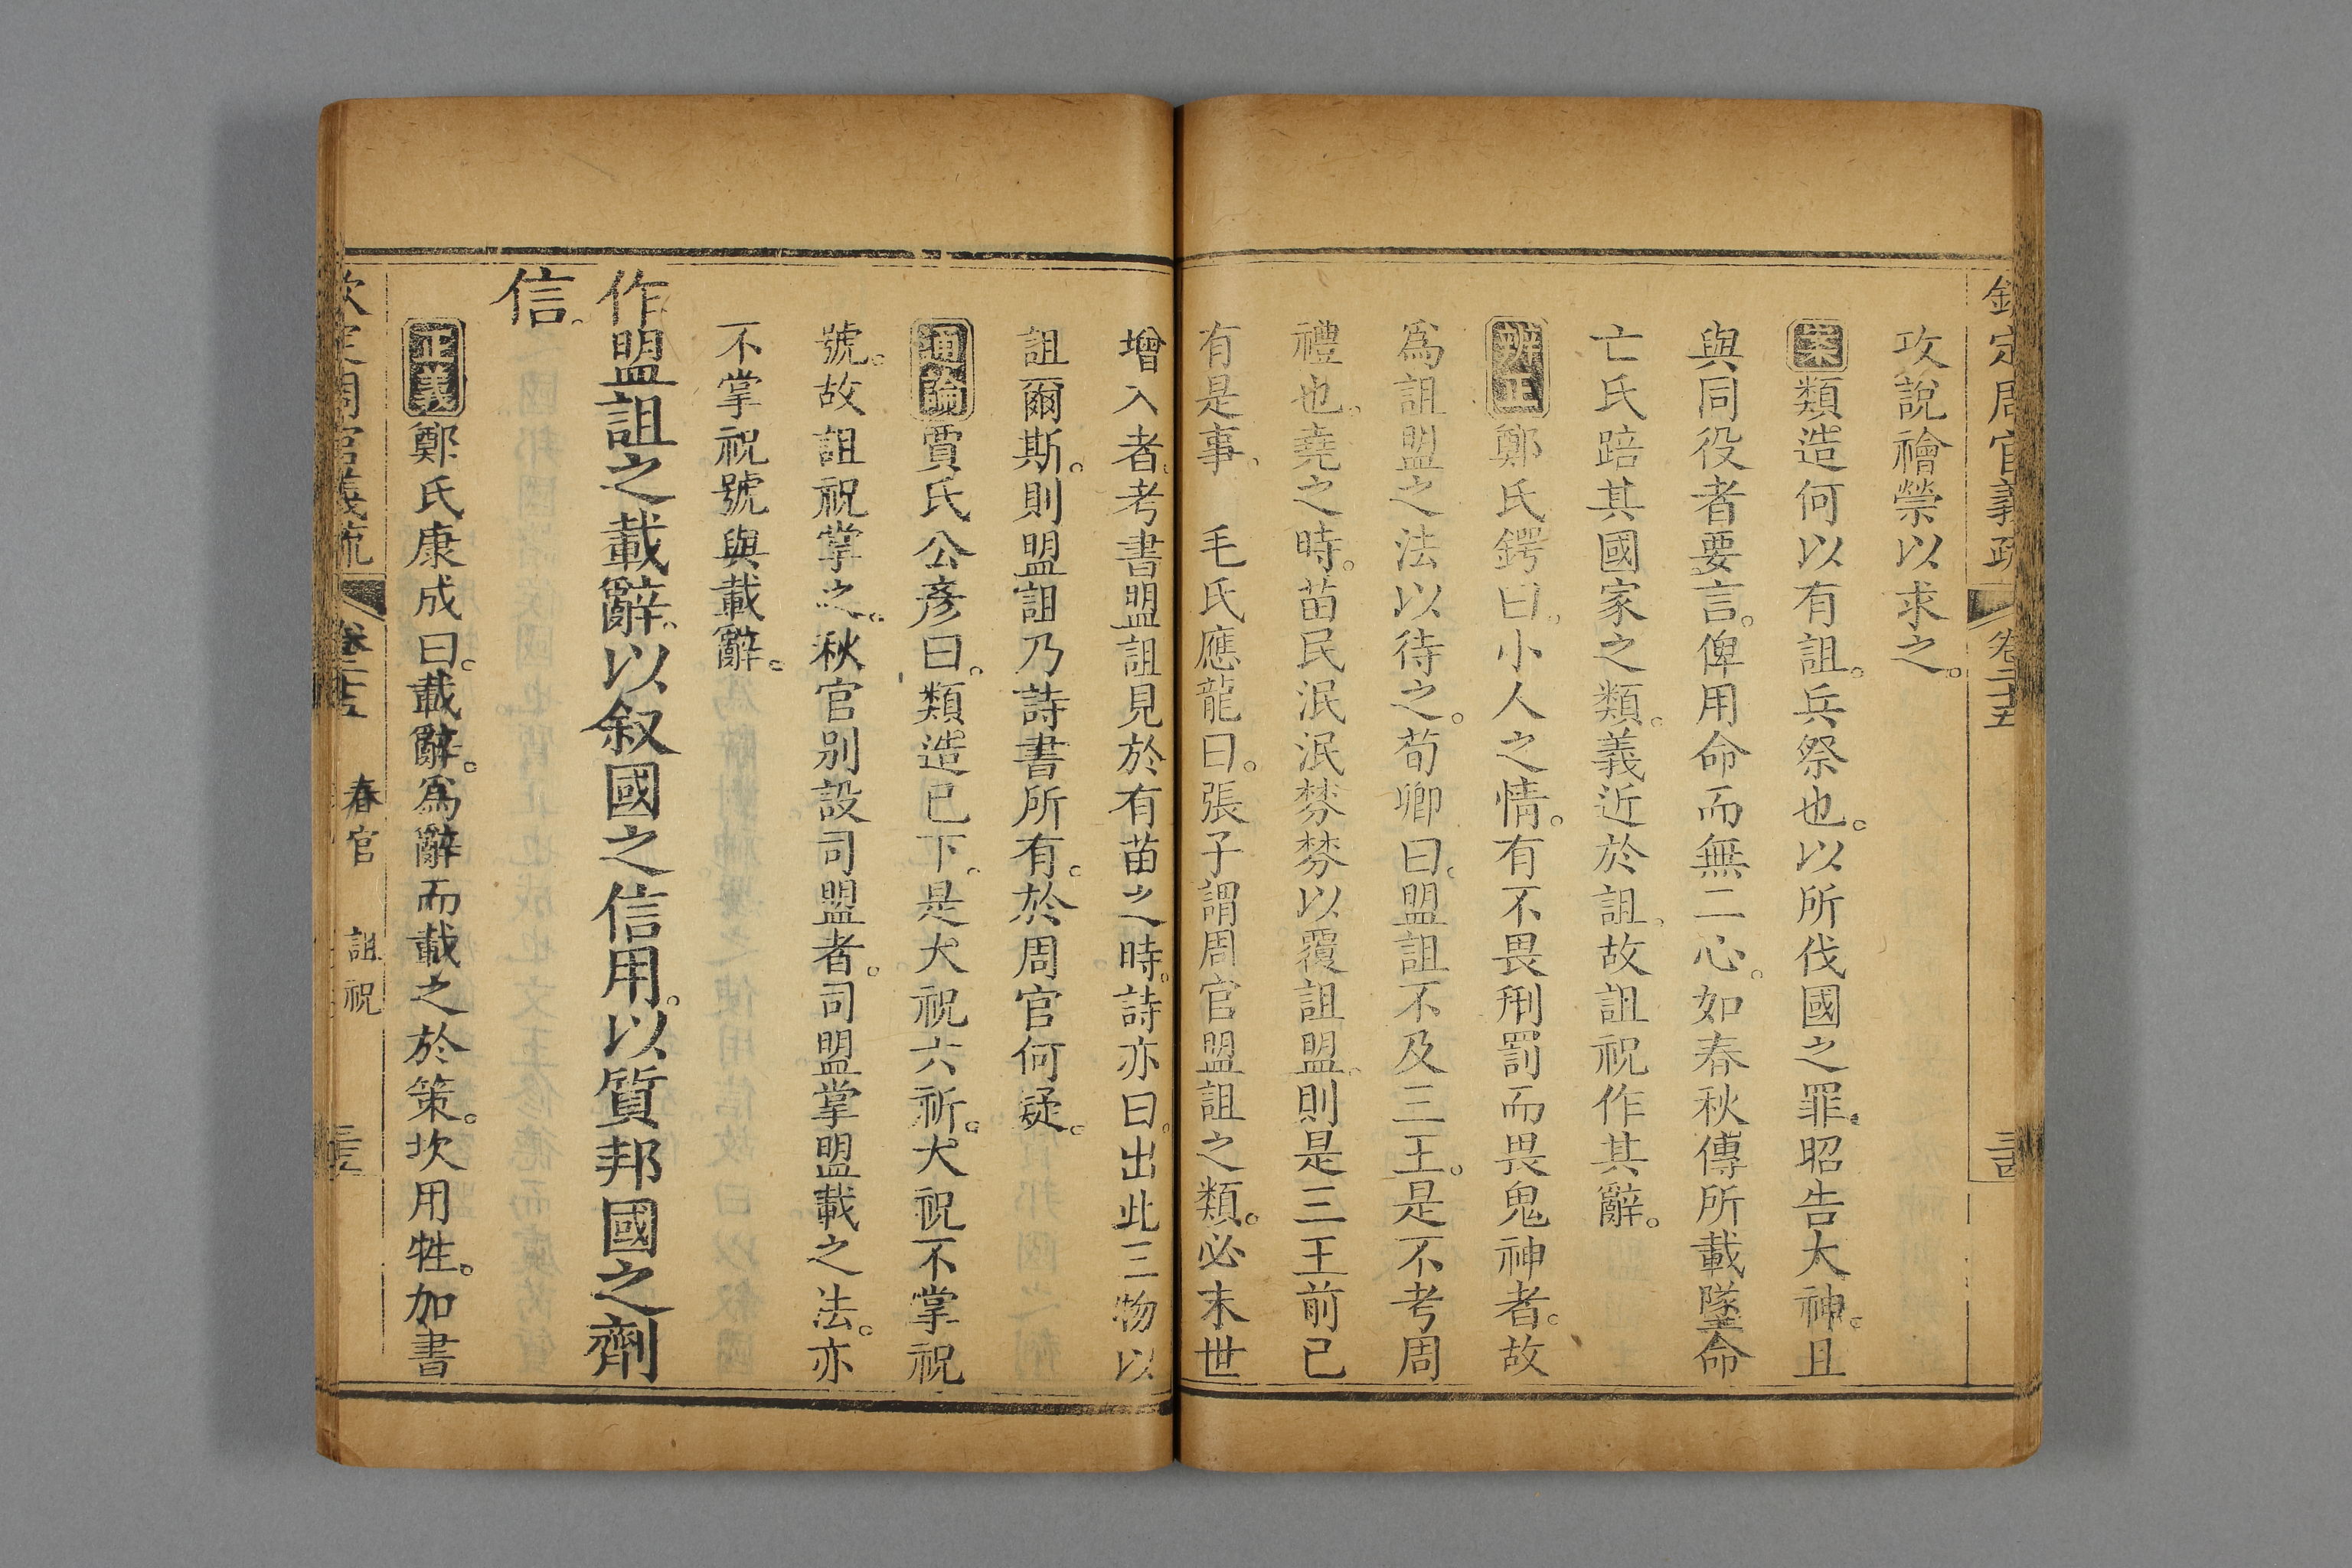 欽定周官義疏 卷二十五
攻說禬禜以求之。
案類造何以有詛。兵祭也。以所伐國之罪。昭告大神。且
與同役者要言。俾用命而無二心。如春秋傳所載墜命
亡氏踣其國家之類。義近於詛。故詛祝作其辭。
辨正鄭氏鍔曰。小人之情。有不畏刑罰而畏鬼神者。故
爲詛盟之法以待之。荀卿曰。盟詛不及三王。是不考周
禮也。堯之時。苗民泯泯棼棼以覆詛盟。則是三王前已
有是事。 毛氏應龍曰。張子謂周官盟詛之類。必末世
增入者。考書盟詛見於有苗之時。詩亦曰。出此三物以
詛爾斯。則盟詛乃詩書所有。於周官何疑。
通論賈氏公彥曰。類造已下。是大祝六祈。大祝不掌祝
號。故詛祝掌之。秋官別設司盟者。司盟掌盟載之法。亦
不掌祝號與載辭。
作盟詛之載辭。以叙國之信用。以質邦國之劑
信。
正義鄭氏康成曰。載辭。爲辭而載之於策。坎用牲。加書
欽定周官義疏 卷二十五 春官 詛祝